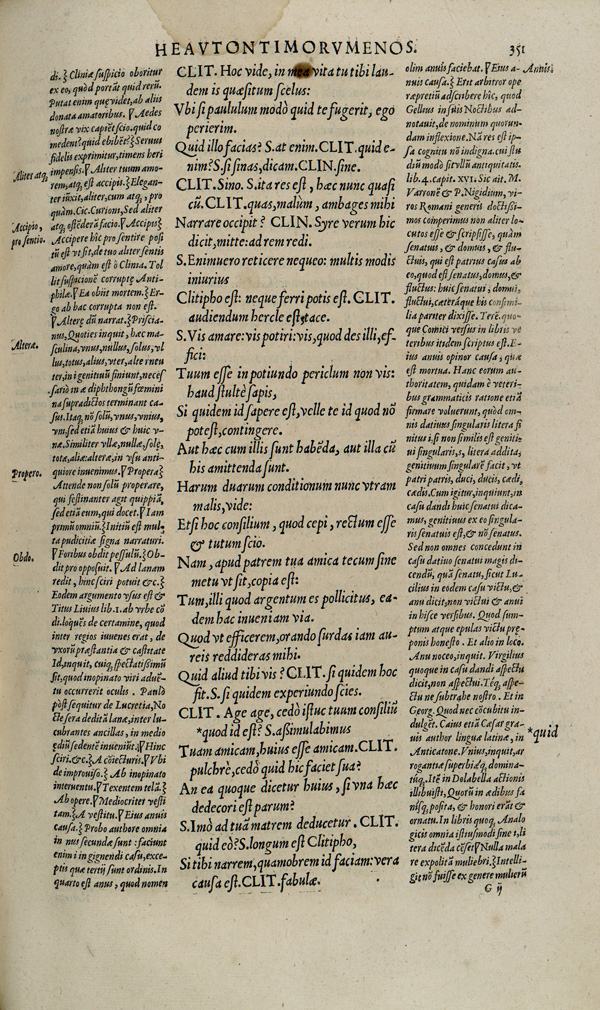 HEAVTONTIMORVMENOS.
351
di. ξ Cliniæ suspicio oboritur
ex eo, quòd portāt quid rerū.
Putat enim quę videt, ab aliis
donata amatoribus. ¶ Aedes
nostræ vix capiēt scio. quid co
medent? quid ebibēt? ξ Seruus
fidelis exprimitur, timens heri
impensis. ¶ Aliter tuum amo-
rem, atq̧ est accipit. ξ Elegan-
ter iūxit, aliter, cum atq̧, pro
quàm. Cic. Curioni, Sed aliter
atq̧ ostēderā facio. ¶ Accipis ξ
Accipere hic pro sentire posi
tū est vt sit, de tuo aliter sentis
amore, quàm est ò Clinia. Tol
lit suspicionē corruptę Anti-
philæ. ¶ Ea obiit mortem. ξ Er-
go ab hac corrupta non est.
¶ Alteræ dū narrat. ξ Priscia-
nus, Quoties inquit, hæc ma-
sculina, vnus, nullus, solus, vl
lus, totus, alius, vter, alterneu
ter, in i genitiuū finiunt, neces
sariò in æ diphthongū fœmini
na supradictos terminant ca-
sus. Itaq, nō solū, vnus, vnius,
vni, sed etiā huius & huic v-
næ. Similiter vllæ, nullæ, solę,
totæ, aliæ, alteræ, in vsu anti-
quiore inuenimus. ¶ Propera ξ
Attende non solū properare,
qui festinanter agit quippiā,
sed etiā eum, qui docet. ¶ Iam
primū omniū. ξ Initiū est mul-
ta pudicitiæ signa narraturi.
¶ Foribus obdit pessulū. ξ Ob-
dit pro opposuit. ¶ Ad lanam
redit, hinc sciri potuit &c. ξ
Eodem argumento vsus est &
Titus Liuius lib. 1. ab vrbe cō
di. loquēs de certamine, quod
inter regios iuuenes erat, de
vxorū præstantia & castitate
Id, inquit, cuiq, spectatissimū
sit, quod inopinato viri aduē-
tu occurrerit oculis. Paulò
pòst sequitur de Lucretia, No
cte sera deditā lanæ, inter lu
cubrantes ancillas, in medio
ędiū sedentē inueniūt. ¶ Hinc
sciri. &c. ξ A cōiecturis. ¶ Vbi
de improuiso. ξ Ab inopinato
interuentu. ¶ Texentem telā. ξ
Ab opere. ¶ Mediocriter vesti
tam. ξ A vestitu. ¶ Eius anuis
causa. ξ Probo authore omnia
in nus secundæ sunt: faciunt
enim i in gignendi casu, exce-
ptis quæ tertij sunt ordinis. In
quarto est anus, quod nomen
Aliter atq,
Accipio,
pro sentio.
Alteræ.
Propero.
Obdo.
CLIT. Hoc vide, in mea vita tu tibi lau-
dem is quæsitum scelus:
Vbi si paululum modò quid te fugerit, ego
perierim.
Quid illo facias? S. at enim. CLIT. quid e-
nim? S. si sinas, dicam. CLIN. sine.
CLIT. Sino. S. ita res est, hæc nunc quasi
cū. CLIT. quas, malùm, ambages mihi
Narrare occipit? CLIN. Syre verum hic
dicit, mitte: ad rem redi.
S. Enimuero reticere nequeo: multis modis
iniurius
Clitipho est: neque ferri potis est. CLIT.
audiendum hercle est, tace.
S. Vis amare: vis potiri: vis, quod des illi, ef-
fici:
Tuum esse in potiundo periclum non vis:
haud stultè sapis,
Si quidem id sapere est, velle te id quod nō
potest, contingere.
Aut hæc cum illis sunt habēda, aut illa cū
his amittenda sunt.
Harum duarum conditionum nunc vtram
malis, vide:
Etsi hoc consilium, quod cepi, rectum esse
& tutum scio.
Nam, apud patrem tua amica tecum sine
metu vt sit, copia est:
Tum, illi quod argentum es pollicitus, ea-
dem hac inueniam via.
Quod vt efficerem, orando surdas iam au-
reis reddideras mihi.
Quid aliud tibi vis? CLIT. si quidem hoc
fit. S. si quidem experiundo scies.
CLIT. Age age, cedò istuc tuum consiliū
*quod id est? S. assimulabimus
Tuam amicam, huius esse amicam. CLIT.
pulchrè, cedò quid hic faciet sua?
An ea quoque dicetur huius, si vna hæc
dedecori est parum?
S. Imò ad tuā matrem deducetur. CLIT.
quid eò? S. longum est Clitipho,
Si tibi narrem, quamobrem id faciam: vera
causa est. CLIT. fabulæ.
olim anuis faciebat. ¶ Eius a-
nuis causa. ξ Erit arbitror ope
ræpretiū adscribere hic, quod
Gellius in suis Noctibus ad-
notauit, de nominum quorun-
dam inflexione. Nā res est ip-
sa cognitu nō indigna. cui stu
diū modò sit vllū antiquitatis.
lib. 4. capit. XVI. Sic ait, M.
Varronē & P. Nigidium, vi-
ros Romani generis doctissi-
mos comperimus non aliter lo-
cutos esse & scripsisse, quàm
senatuis, & domuis, & flu-
ctuis, qui est patrius casus ab
eo, quod est senatus, domus, &
fluctus: huic senatui, domui,
fluctui, cæteráque his consimi-
lia pariter dixisse. Terē. quo-
que Comici versus in libris ve
teribus itidem scriptus est. E-
ius anuis opinor causa, quæ
est mortua. Hanc eorum au-
thoritatem, quidam è veteri-
bus grammaticis ratione etiā
firmare voluerunt, quòd om-
nis datiuus singularis litera fi
nitus i. si non similis est geniti-
ui singularis, s, litera addita,
genitiuum singularē facit, vt
patri patris, duci, ducis, cædi,
cædis. Cum igitur, inquiunt, in
casu dandi huic senatui dica-
mus, genitiuus ex eo singula-
ris senatuis est, & nō senatus.
Sed non omnes concedunt in
casu datiuo senatui magis di-
cendū, quā senatu, sicut Lu-
cilius in eodem casu victu, &
anu dicit, non victui & anui
in hisce versibus. Quod sum-
ptum atque epulas victu præ-
ponis honesto. Et alio in loco.
Anu noceo, inquit. Virgilius
quoque in casu dandi aspectu
dicit, non aspectui. Téq, aspe-
ctu ne subtrahe nostro. Et in
Georg. Quod nec cōcubitu in-
dulgēt. Caius etiā Cæsar gra-
uis author linguæ latinæ, in
Anticatone. Vnius, inquit, ar
rogantiæ superbiæq, domina-
tuq, Itē in Dolabellā actionis
illibuisti, Quorū in ædibus fa
nisq, posita, & honori erāt &
ornatu. In libris quoq, Analo
gicis omnia istiusmodi sine i, li
tera dicēda cēset ¶ Nulla ma
la re expolitā muliebri. ξ Intelli-
git nō fuisse ex genere mulierū
Anuis
*quid
G ij